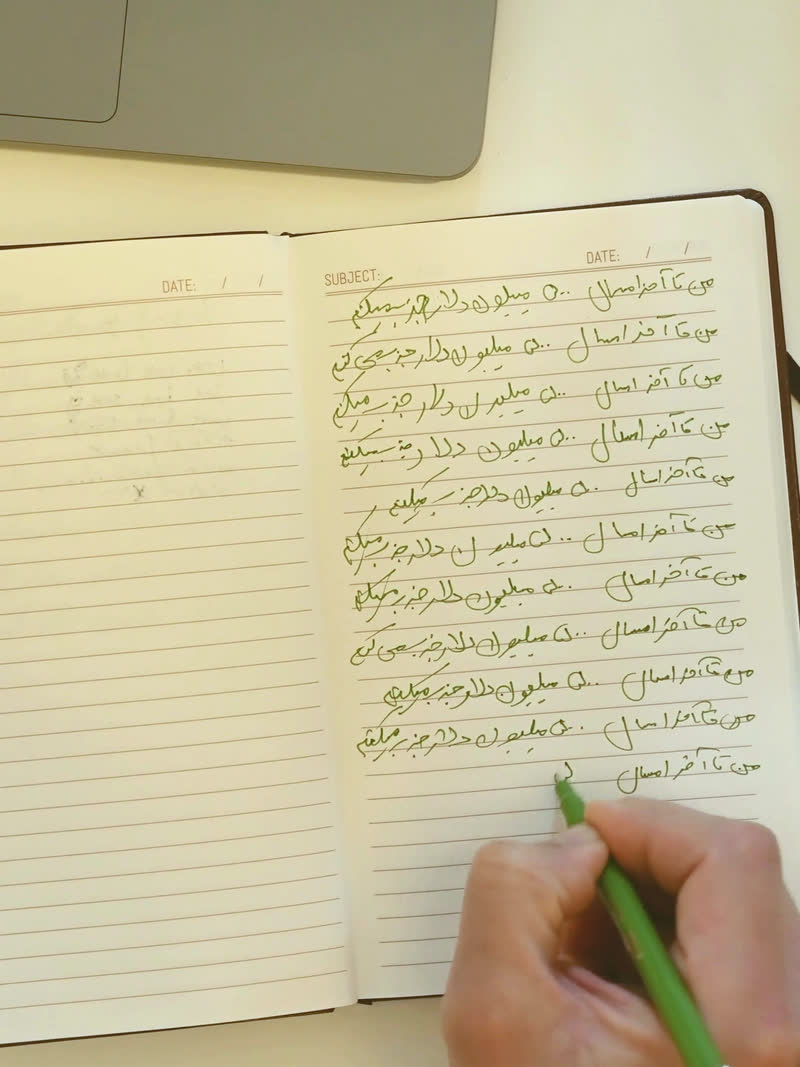 DATE: / /
SUBJECT: DATE: / /
من تا آخر امسال ۵۰۰ میلیون دلار جذب میکنم
من تا آخر امسال ۵۰۰ میلیون دلار جذب می کنم
من تا آخر امسال ۵۰۰ میلیون دلار جذب میکنم
من تا آخر امسال ۵۰۰ میلیون دلار جذب میکنم
من تا آخر امسال ۵۰ میلیون دلار جذب میکنم
من تا آخر امسال ۵۰۰ میلیون دلار جذب میکنم
من تا آخر امسال ۵۰۰ میلیون دلار جذب میکنم
من تا آخر امسال ۵۰۰ میلیون دلار جذب می کنم
من تا آخر امسال ۵۰۰ میلیون دلار جذب میکنم
من تا آخر امسال ۵۰ میلیون دلار جذب میکنم
من تا آخر امسال